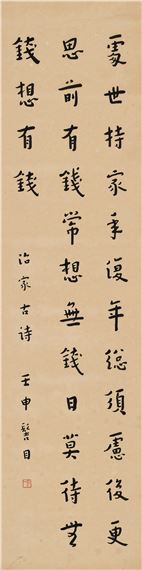 處世持家年復年總須慮後更
思前有錢常想無錢日莫待無
錢想有錢
治家古詩 壬申